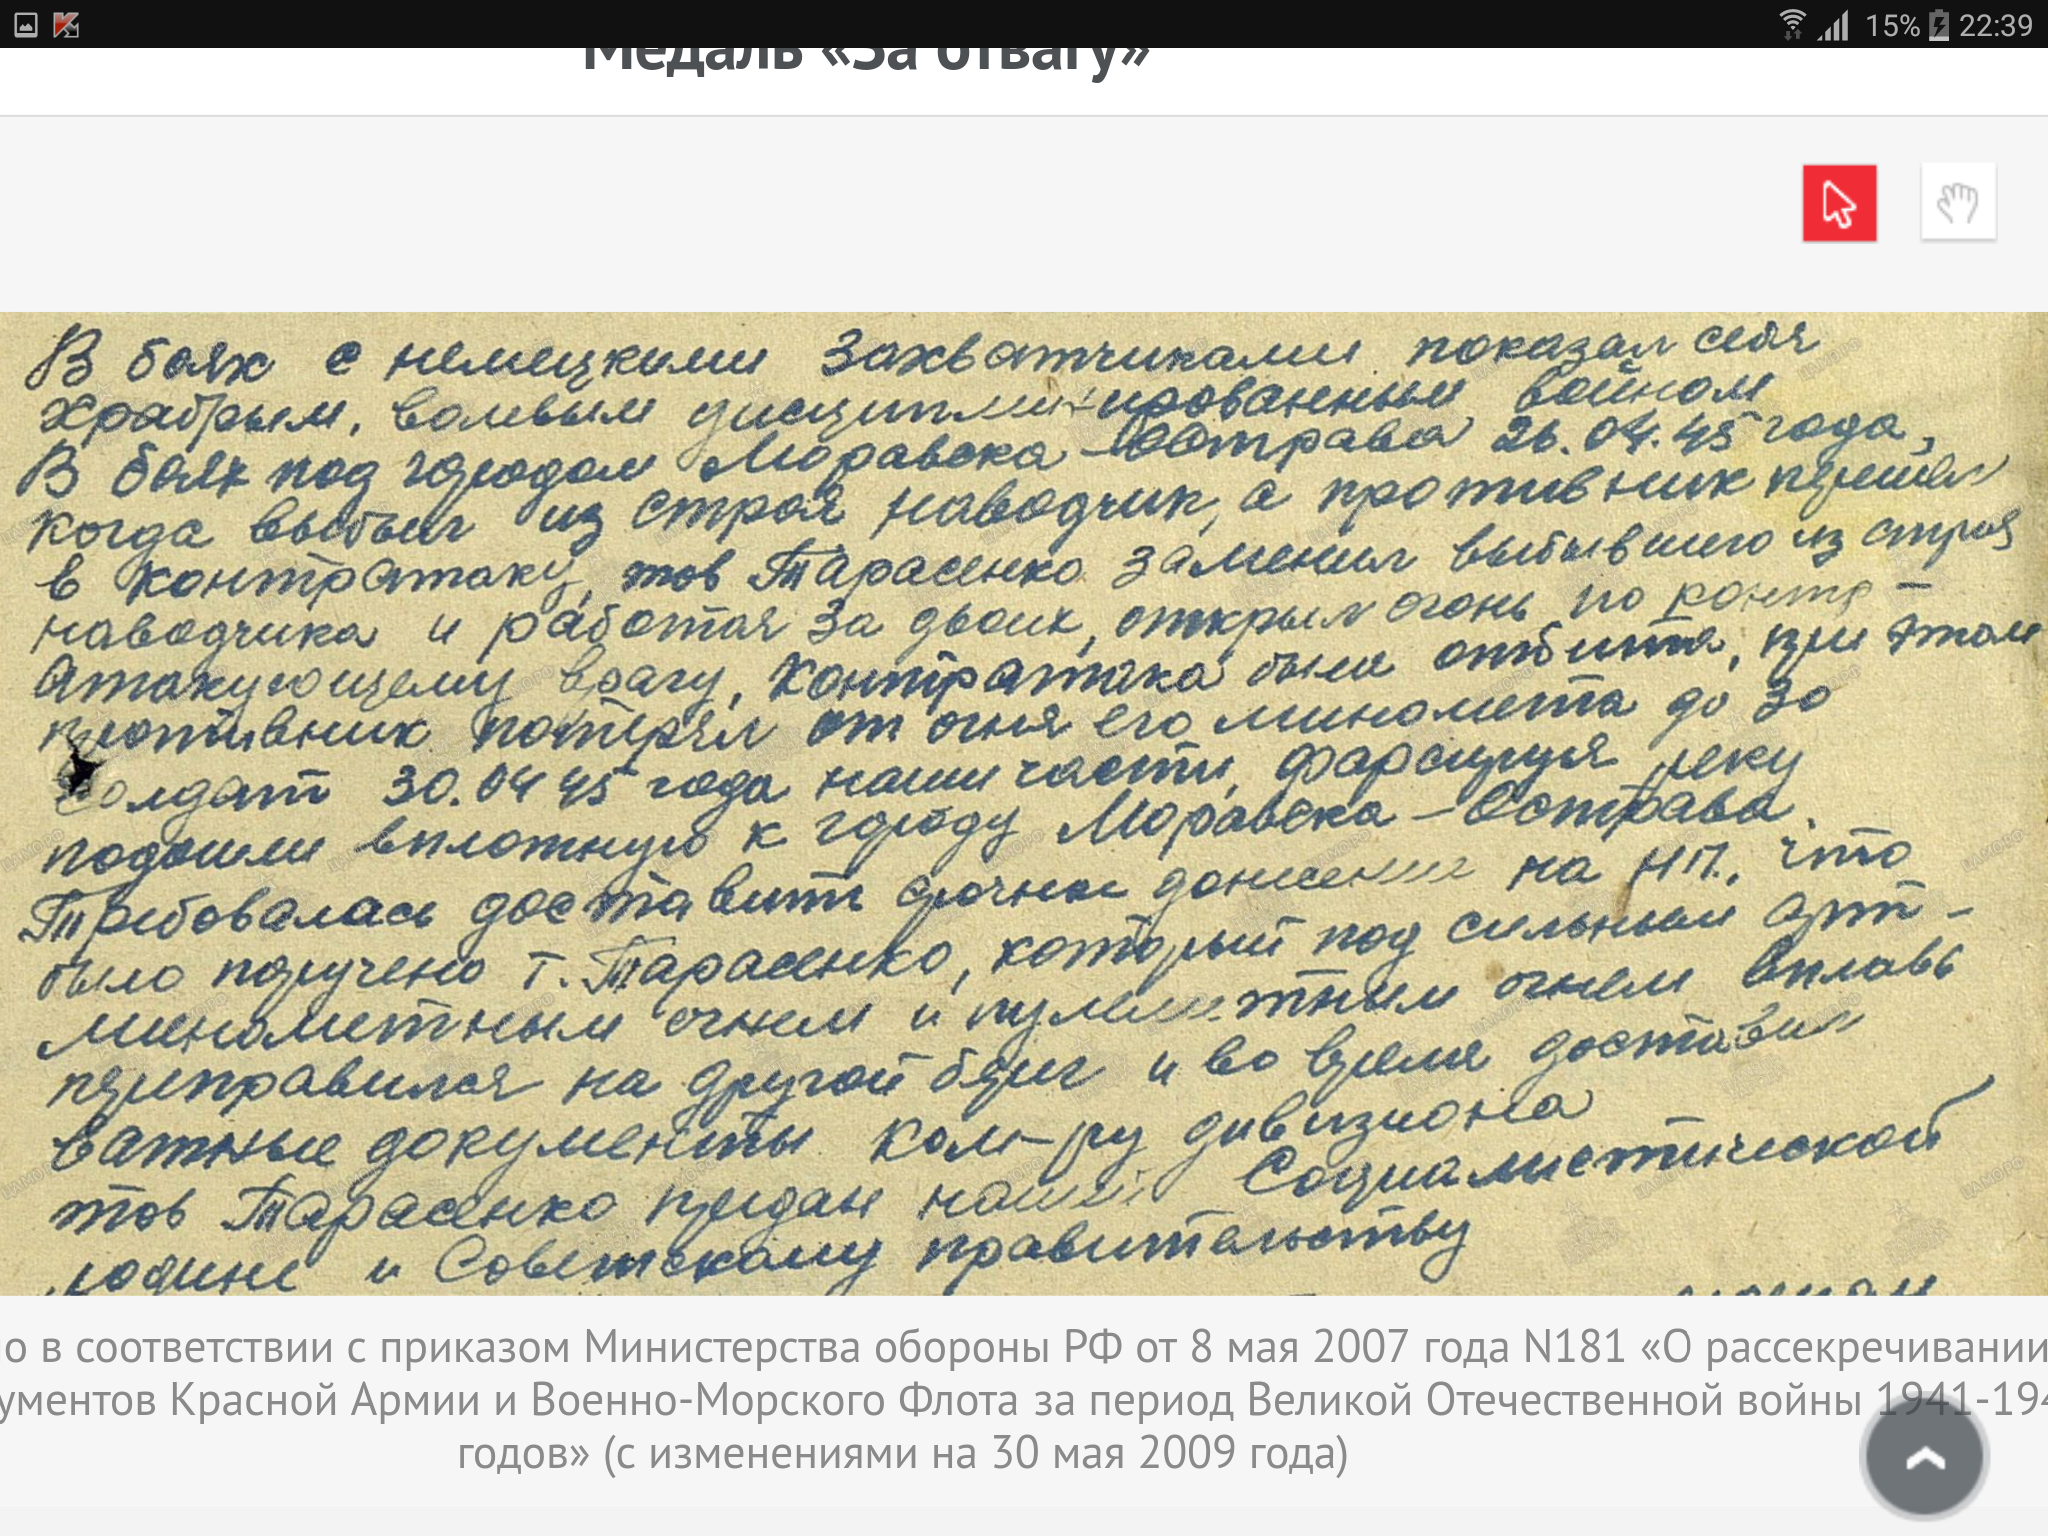 15% 22:39
Медаль «За отвагу»
В боях с немецкими захватчиками показал себя
храбрым, волевым дисциплинированным войном
В боях под городом Моравска-Острава 26.04.45 года,
когда выбыл из строя наводчик, а противник перешел
в контратаку, тов Тарасенко заменил выбывшего из строя
наводчика и работая за двоих, открыл огонь по контр-
атакующему врагу, контратака была отбита, при этом
противник потерял от огня его миномета до 30
солдат 30.04 45 года наши части, фарсируя реку
подошли вплотную к городу Моравска-Острава.
Требовалась доставить срочные донесение на НП., что
было поручено т. Тарасенко, который под сильным арт-
минометным огнем и пулеметным огнем вплавь
переправился на другой берег и во время доставил
важные документы ком-ру дивизиона
тов Тарасенко предан нашей Социалистической
родине и Советскому правительству
о в соответствии с приказом Министерства обороны РФ от 8 мая 2007 года N181 «О рассекречивании
ументов Красной Армии и Военно-Морского Флота за период Великой Отечественной войны 1941-194
годов» (с изменениями на 30 мая 2009 года)